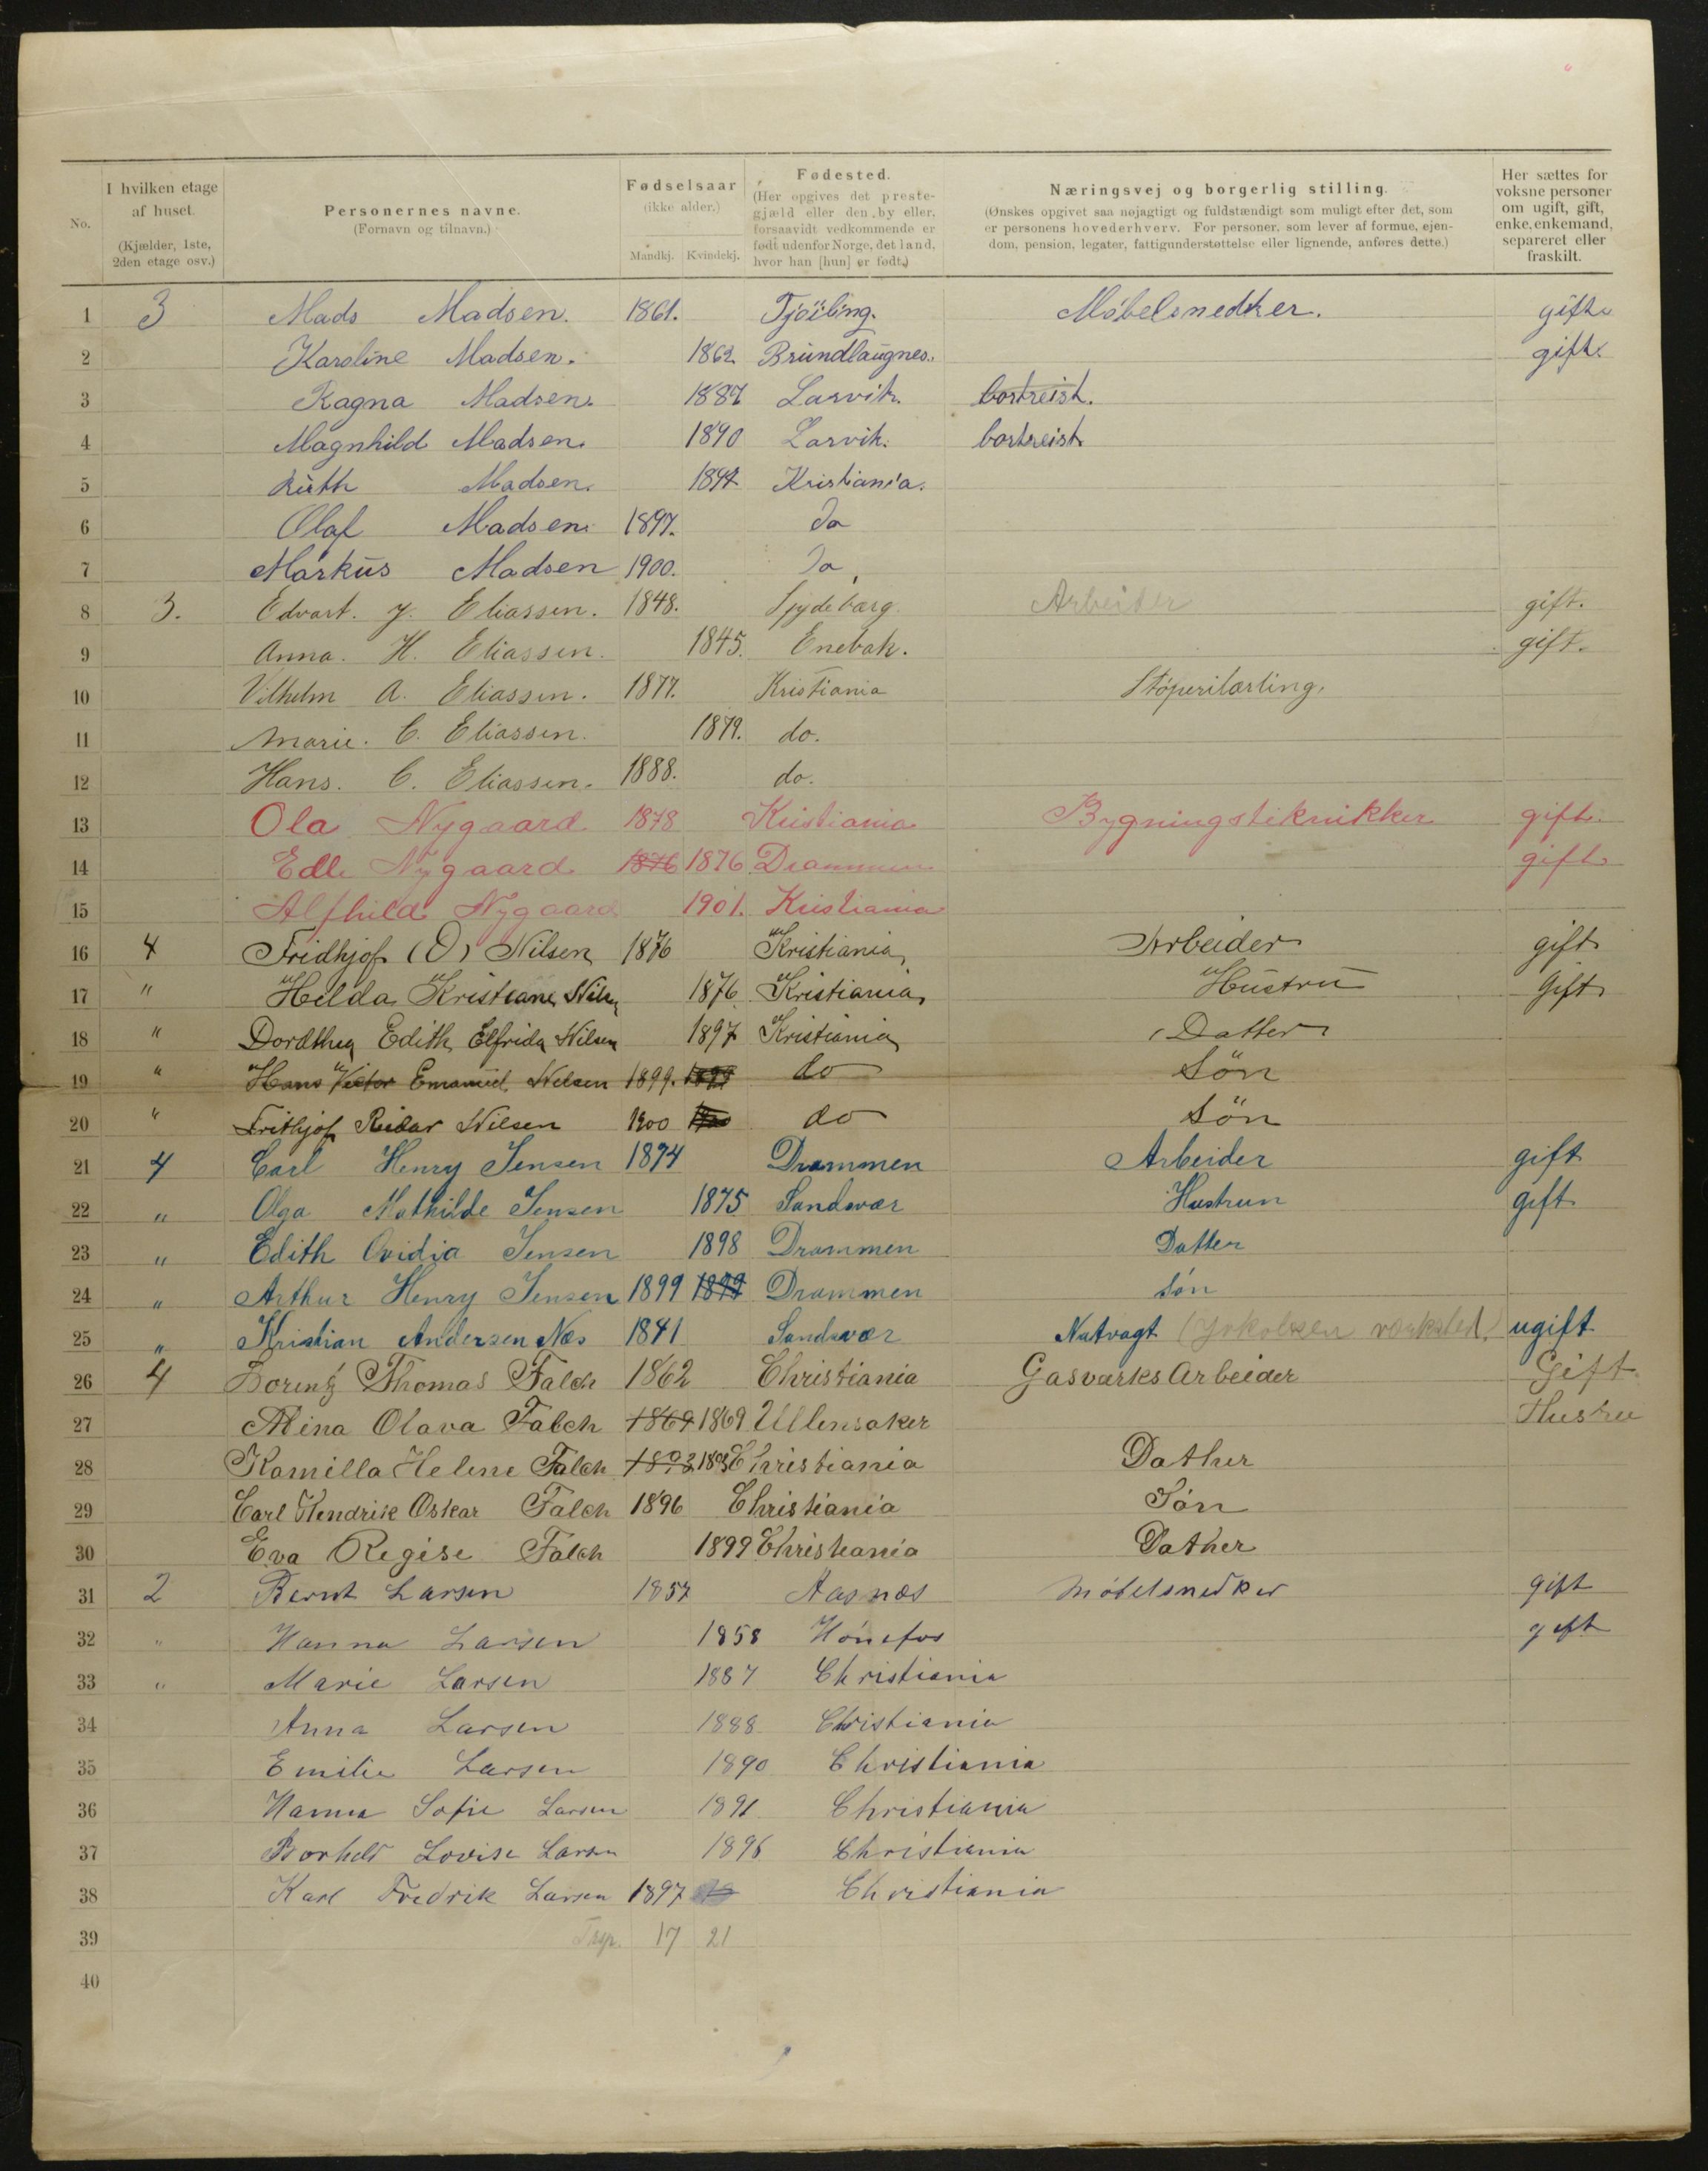 No.
I hvilken etage af huset. (Kjælder, 1ste, 2den etage osv.)
Personernes navne. (Fornavn og tilnavn.)
Fødselsaar (ikke alder.) Mandkj. Kvindekj.
Fødested. (Her opgives det prestegjæld eller den by eller, forsaavidt vedkommende er født udenfor Norge, det land, hvor han [hun] er født.)
Næringsvej og borgerlig stilling. (Ønskes opgivet saa nøjagtigt og fuldstændigt som muligt efter det, som er personens hovederhverv. For personer, som lever af formue, ejendom, pension, legater, fattigunderstøttelse eller lignende, anføres dette.)
Her sættes for voksne personer om ugift, gift, enke, enkemand, separeret eller fraskilt.
1 3 Mads Madsen. 1861. Tjøling. Møbelsnedker. gift.
2 Karoline Madsen. 1862 Brundlaugnes. gift.
3 Ragna Madsen. 1887 Larvik. bortreist.
4 Magnhild Madsen. 1890 Larvik. bortreist
5 Ruth Madsen. Kristiania.
6 Olaf Madsen. 1897. Do
7 Markus Madsen 1900. Do
8 3. Edvart. J. Eliassen. 1848. Spydebærg. Arbeider gift.
9 Anna. H. Eliassen. 1845. Enebak. gift.
10 Vilhelm A. Eliassen. 1877. Kristiania Støperilærling.
11 Marie. C. Eliassen. 1879. do.
12 Hans. C. Eliassen. 1888. do.
13 Ola Nygaard 1878 Kristiania Bygningsteknikker gift.
14 Edle Nygaard 1876 1876 Drammen gift.
15 Alfhild Nygaard 1901. Kristiania
16 4 Fridhjof (O) Nilsen 1876 Kristiania Arbeider gift
17 " Hilda Kristiane Nilsen 1876 Kristiania Hustru Gift
18 " Dordthea Edith Elfrida Nilsen 1897 Kristiania Datter
19 " Hans Victor Emanuel Nilsen 1899. 1899 do Søn
20 " Frithjof Reidar Nilsen 1900 do Søn
21 4 Carl Henry Jensen 1874 Drammen Arbeider gift
22 " Olga Mathilde Jensen 1875 Sandsvær Hustrun gift
23 " Edith Ovidia Jensen 1898 Drammen Datter
24 " Arthur Henry Jensen 1899 1899 Drammen søn
25 " Kristian Andersen Næs 1841 Sandsvær Natvagt (Jakobsen værksted.) ugift
26 4 Lorentz Thomas Falch 1862 Christiania Gasværks Arbeider Gift
27 Mina Olava Falch 1869 1869 Ullensaker Hustru
28 Kamilla Helene Falch 1893 1893 Christiania Dather
29 Carl Hendrik Oskar Falch 1896 Christiania Søn
30 Eva Regise Falch 1899 Christiania Dather
31 2 Bernt Larsen 1857 Aasnæs Møbelsnedker gift
32 " Hanna Larsen 1858 Hønefos gift
33 " Marie Larsen 1887 Christiania
34 Anna Larsen 1888 Christiania
35 Emilie Larsen 1890 Christiania
36 Hanna Sofie Larsen 1891 Christiania
37 Borhild Lovise Larsen 1896 Christiania
38 Karl Fredrik Larsen 1897 Christiania
39 17 21
40